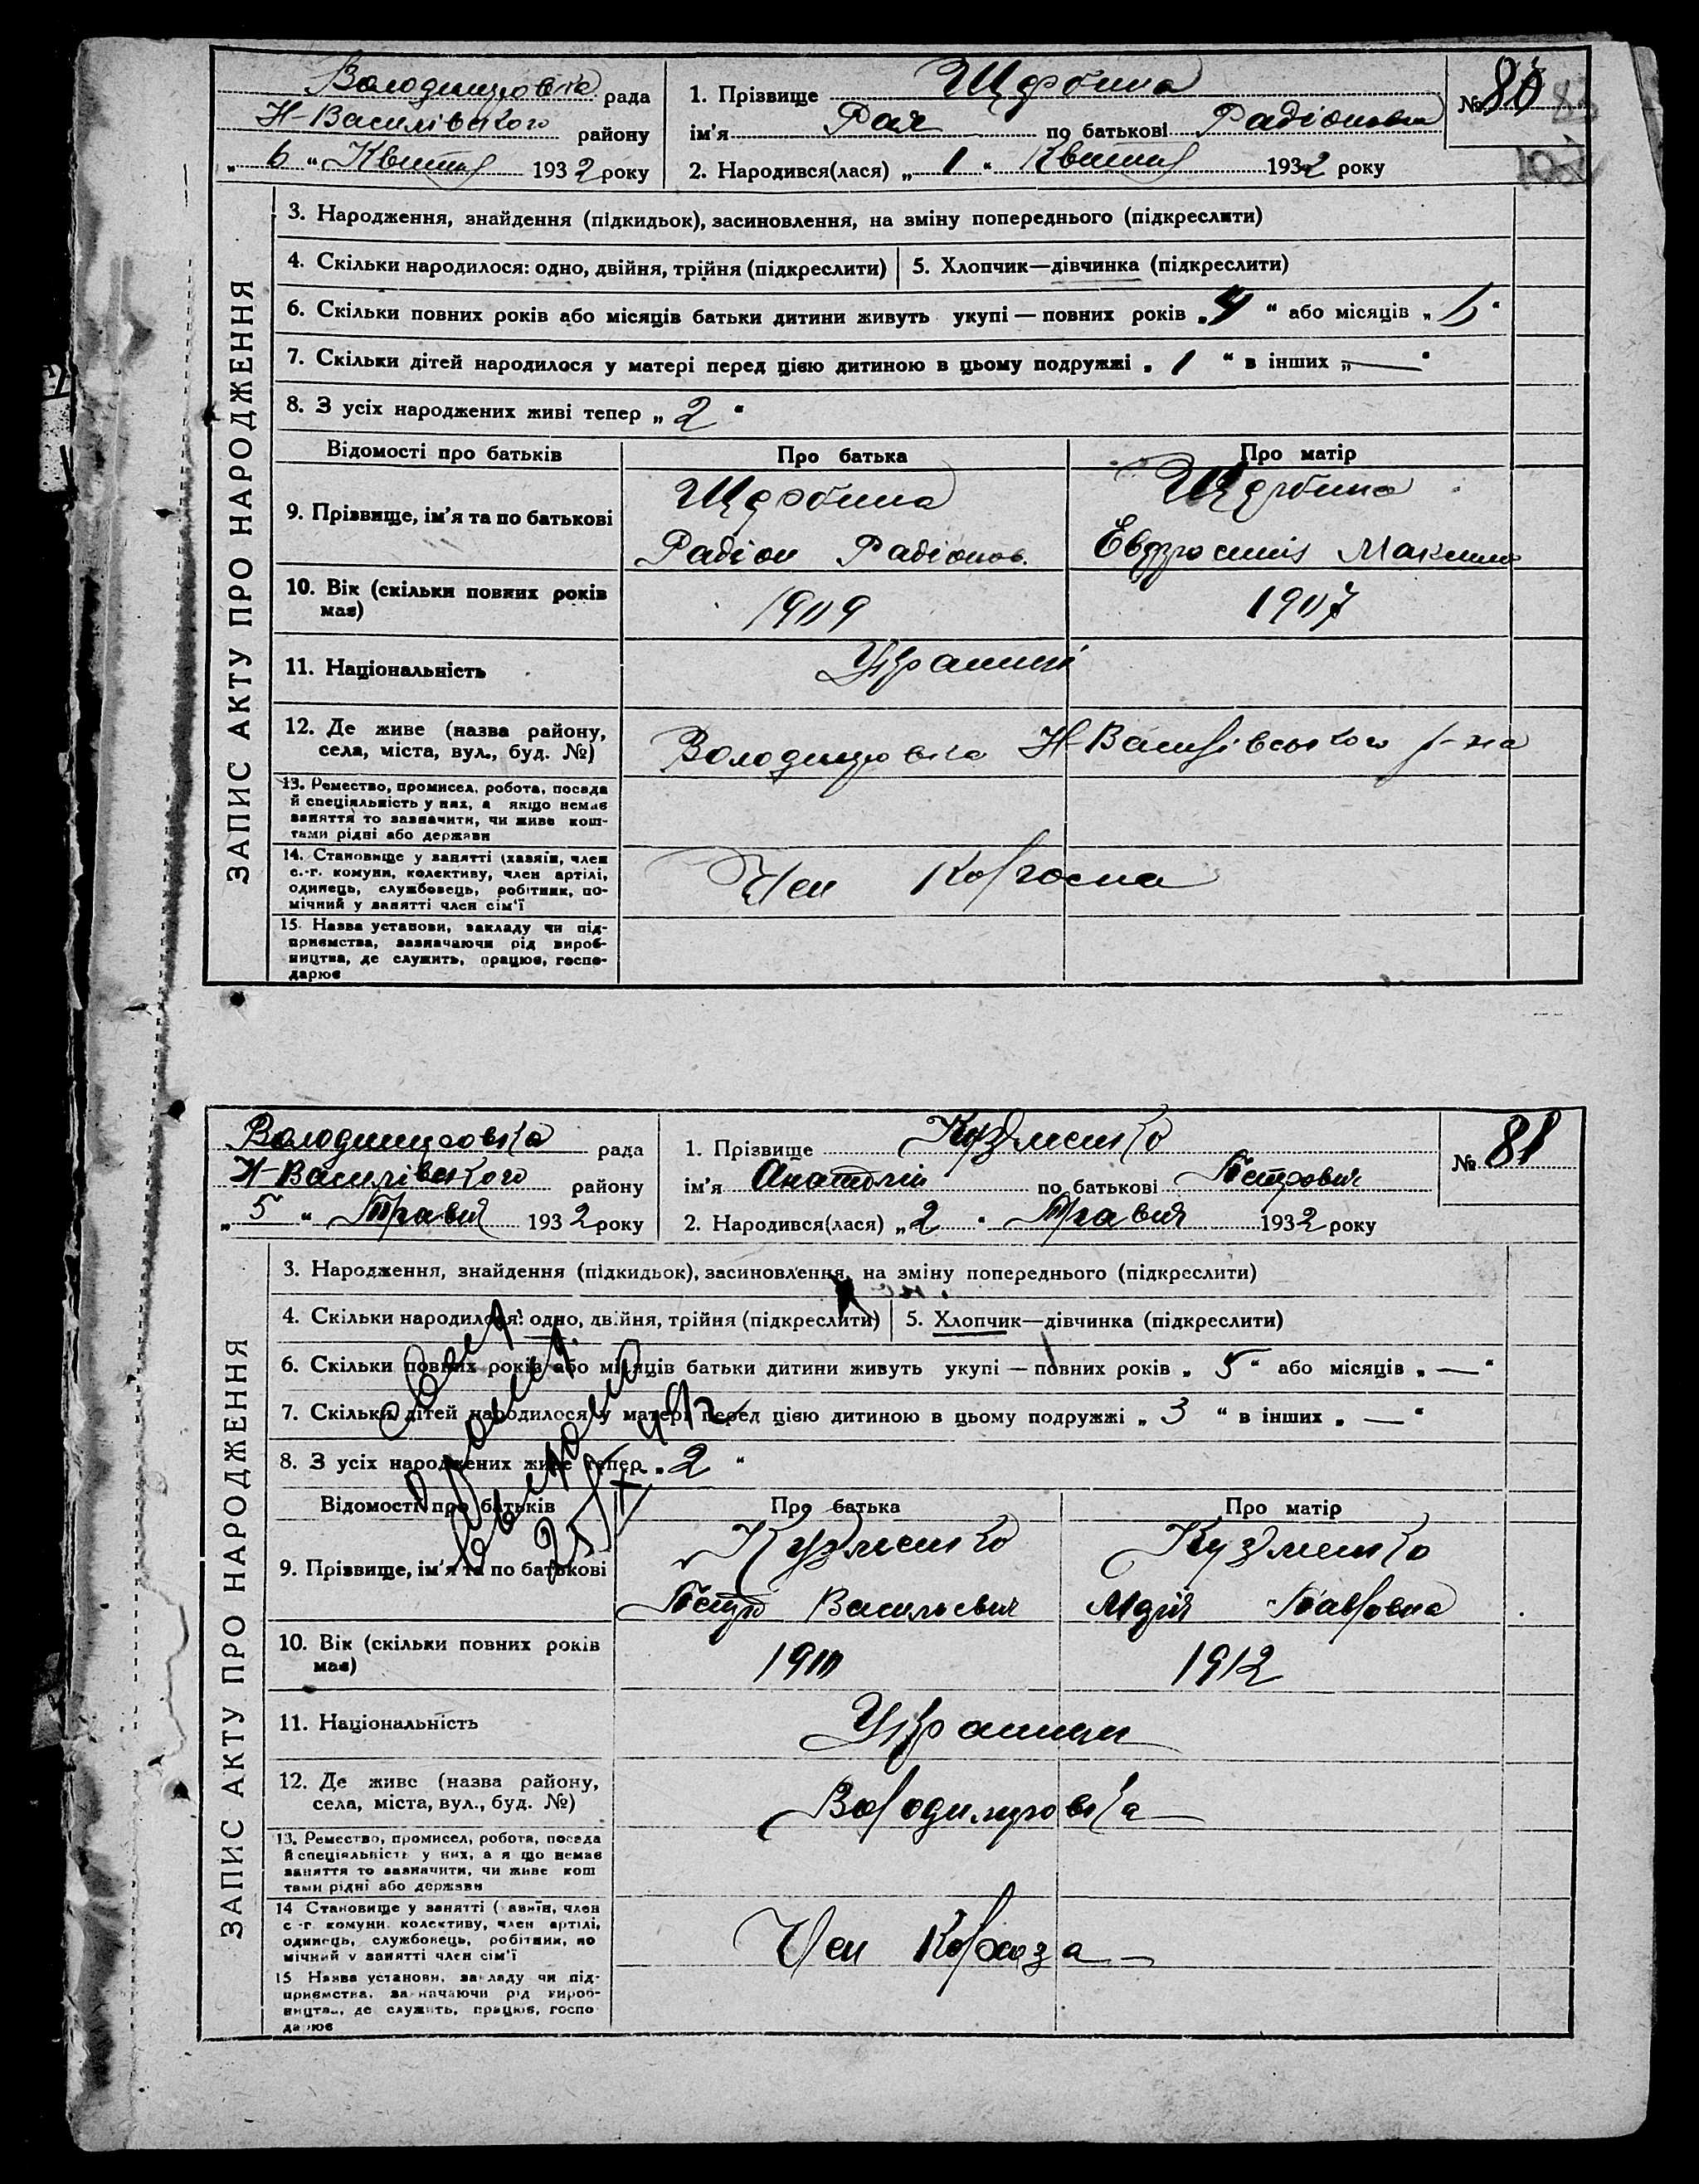 Володимировка рада
Н-Василівского району
„ 6 “ Квітня 1932 року
1. Прізвище Щербина
ім'я Рая по батькові Радіоновна
2. Народився(лася) „ 1 “ Квітня 1932 року
№ 80
ЗАПИС АКТУ ПРО НАРОДЖЕННЯ
3. Народження, знайдення (підкидьок), засиновлення, на зміну попереднього (підкреслити)
4. Скільки народилося: одно, двійня, трійня (підкреслити) 5. Хлопчик—дівчинка (підкреслити)
6. Скільки повних років або місяців батьки дитини живуть укупі — повних років „ 4 “ або місяців „ 6 “
7. Скільки дітей народилося у матері перед цією дитиною в цьому подружжі „ 1 “ в інших „ — “
8. З усіх народжених живі тепер „ 2 “
Відомості про батьків Про батька Про матір
9. Прізвище, ім'я та по батькові
Щербина
Радіон Радіонов.
Щербина
Евфросинія Максимо
10. Вік (скільки повних років має) 1909 1907
11. Національність
12. Де живе (назва району,
села, міста, вул., буд. №)
Володимировка Н-Василівського р-на
13. Ремество, промисел, робота, посада
й спеціяльність у них, а якщо немає
заняття то зазначити, чи живе кош-
тами рідні або держави
14. Становище у занятті (хазяїн, член
с.-г. комуни, колективу, член артілі,
одинець, службовець, робітник, по-
мічний у занятті член сім'ї
Член Колгоспа
15. Назва установи, закладу чи під-
приємства, зазначаючи рід вироб-
ництва, де служить, працює, госпо-
дарює
Володимировка рада
Н-Василівского району
„ 5 “ Травня 1932 року
1. Прізвище Кузменко
ім'я Анатолій по батькові Петрович
2. Народився(лася) „ 2 “ Травня 1932 року
№ 81
ЗАПИС АКТУ ПРО НАРОДЖЕННЯ
3. Народження, знайдення (підкидьок), засиновлення, на зміну попереднього (підкреслити)
4. Скільки народилося: одно, двійня, трійня (підкреслити) 5. Хлопчик—дівчинка (підкреслити)
6. Скільки повних років або місяців батьки дитини живуть укупі — повних років „ 5 “ або місяців „ — “
7. Скільки дітей народилося у матері перед цією дитиною в цьому подружжі „ 3 “ в інших „ — “
8. З усіх народжених живі тепер „ 2 “
Відомості про батьків Про батька Про матір
9. Прізвище, ім'я та по батькові
Кузменко
Петро Васильевич
Кузменко
Марія Павловна
10. Вік (скільки повних років має) 1910 1912
11. Національність
12. Де живе (назва району,
села, міста, вул., буд. №)
Володимировка
13. Ремество, промисел, робота, посада
й спеціяльність у них, а якщо немає
заняття то зазначити, чи живе кош
тами рідні або держави
14 Становище у занятті (хазяїн, член
с-г комуни, колективу, член артілі,
одинець, службовець, робітник, по
мічний у занятті член сім'ї
Член Колхоза
15 Назва установи, закладу чи під-
приємства, зазначаючи рід вироб-
ництва, де служить, працює, госпо
дарює